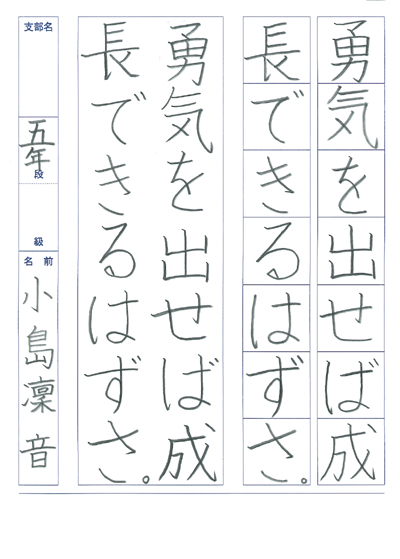 勇気を出せば成
長できるはずさ。
勇気を出せば成
長できるはずさ。
支部名
五年
段
級
名前
小島凜音